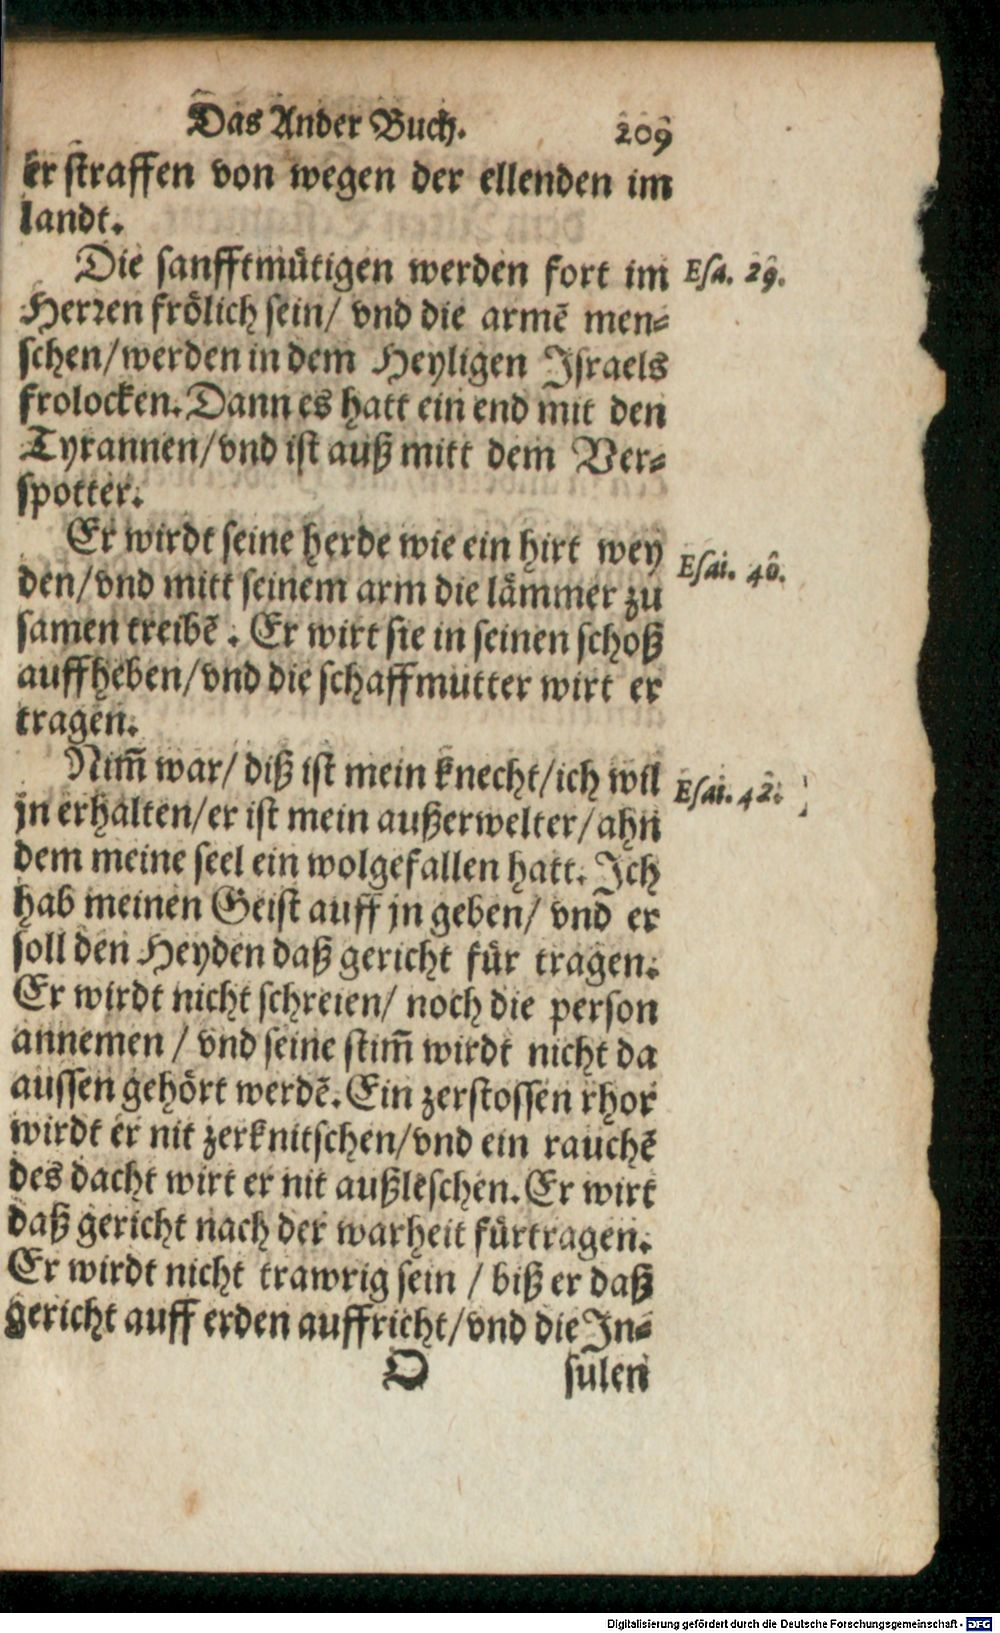 Das Ander Buch. 209
er straffen von wegen der ellenden im
landt.
Die sanfftmütigen werden fort im Esa. 29.
Herren frölich sein/ vnd die armē men-
schen/werden in dem Heyligen Israels
frolocken. Dann es hatt ein end mit den
Tyrannen/vnd ist auß mitt dem Ver-
spotter.
Er wirdt seine herde wie ein hirt wey Esai. 40.
den/vnd mitt seinem arm die lämmer zu
samen treibē. Er wirt sie in seinen schoß
auffheben/vnd die schaffmutter wirt er
tragen.
Nim̄ war/ diß ist mein knecht/ich wil Esai. 42.
jn erhalten/er ist mein außerwelter/ahn
dem meine seel ein wolgefallen hatt. Ich
hab meinen Geist auff jn geben/ vnd er
soll den Heyden daß gericht für tragen.
Er wirdt nicht schreien/ noch die person
annemen / vnd seine stim̄ wirdt nicht da
aussen gehört werdē. Ein zerstossen rhor
wirdt er nit zerknitschen/vnd ein rauchē
des dacht wirt er nit außleschen. Er wirt
daß gericht nach der warheit fürtragen.
Er wirdt nicht trawrig sein / biß er daß
gericht auff erden auffricht/vnd die In-
O sulen
Digitalisierung gefördert durch die Deutsche Forschungsgemeinschaft - DFG